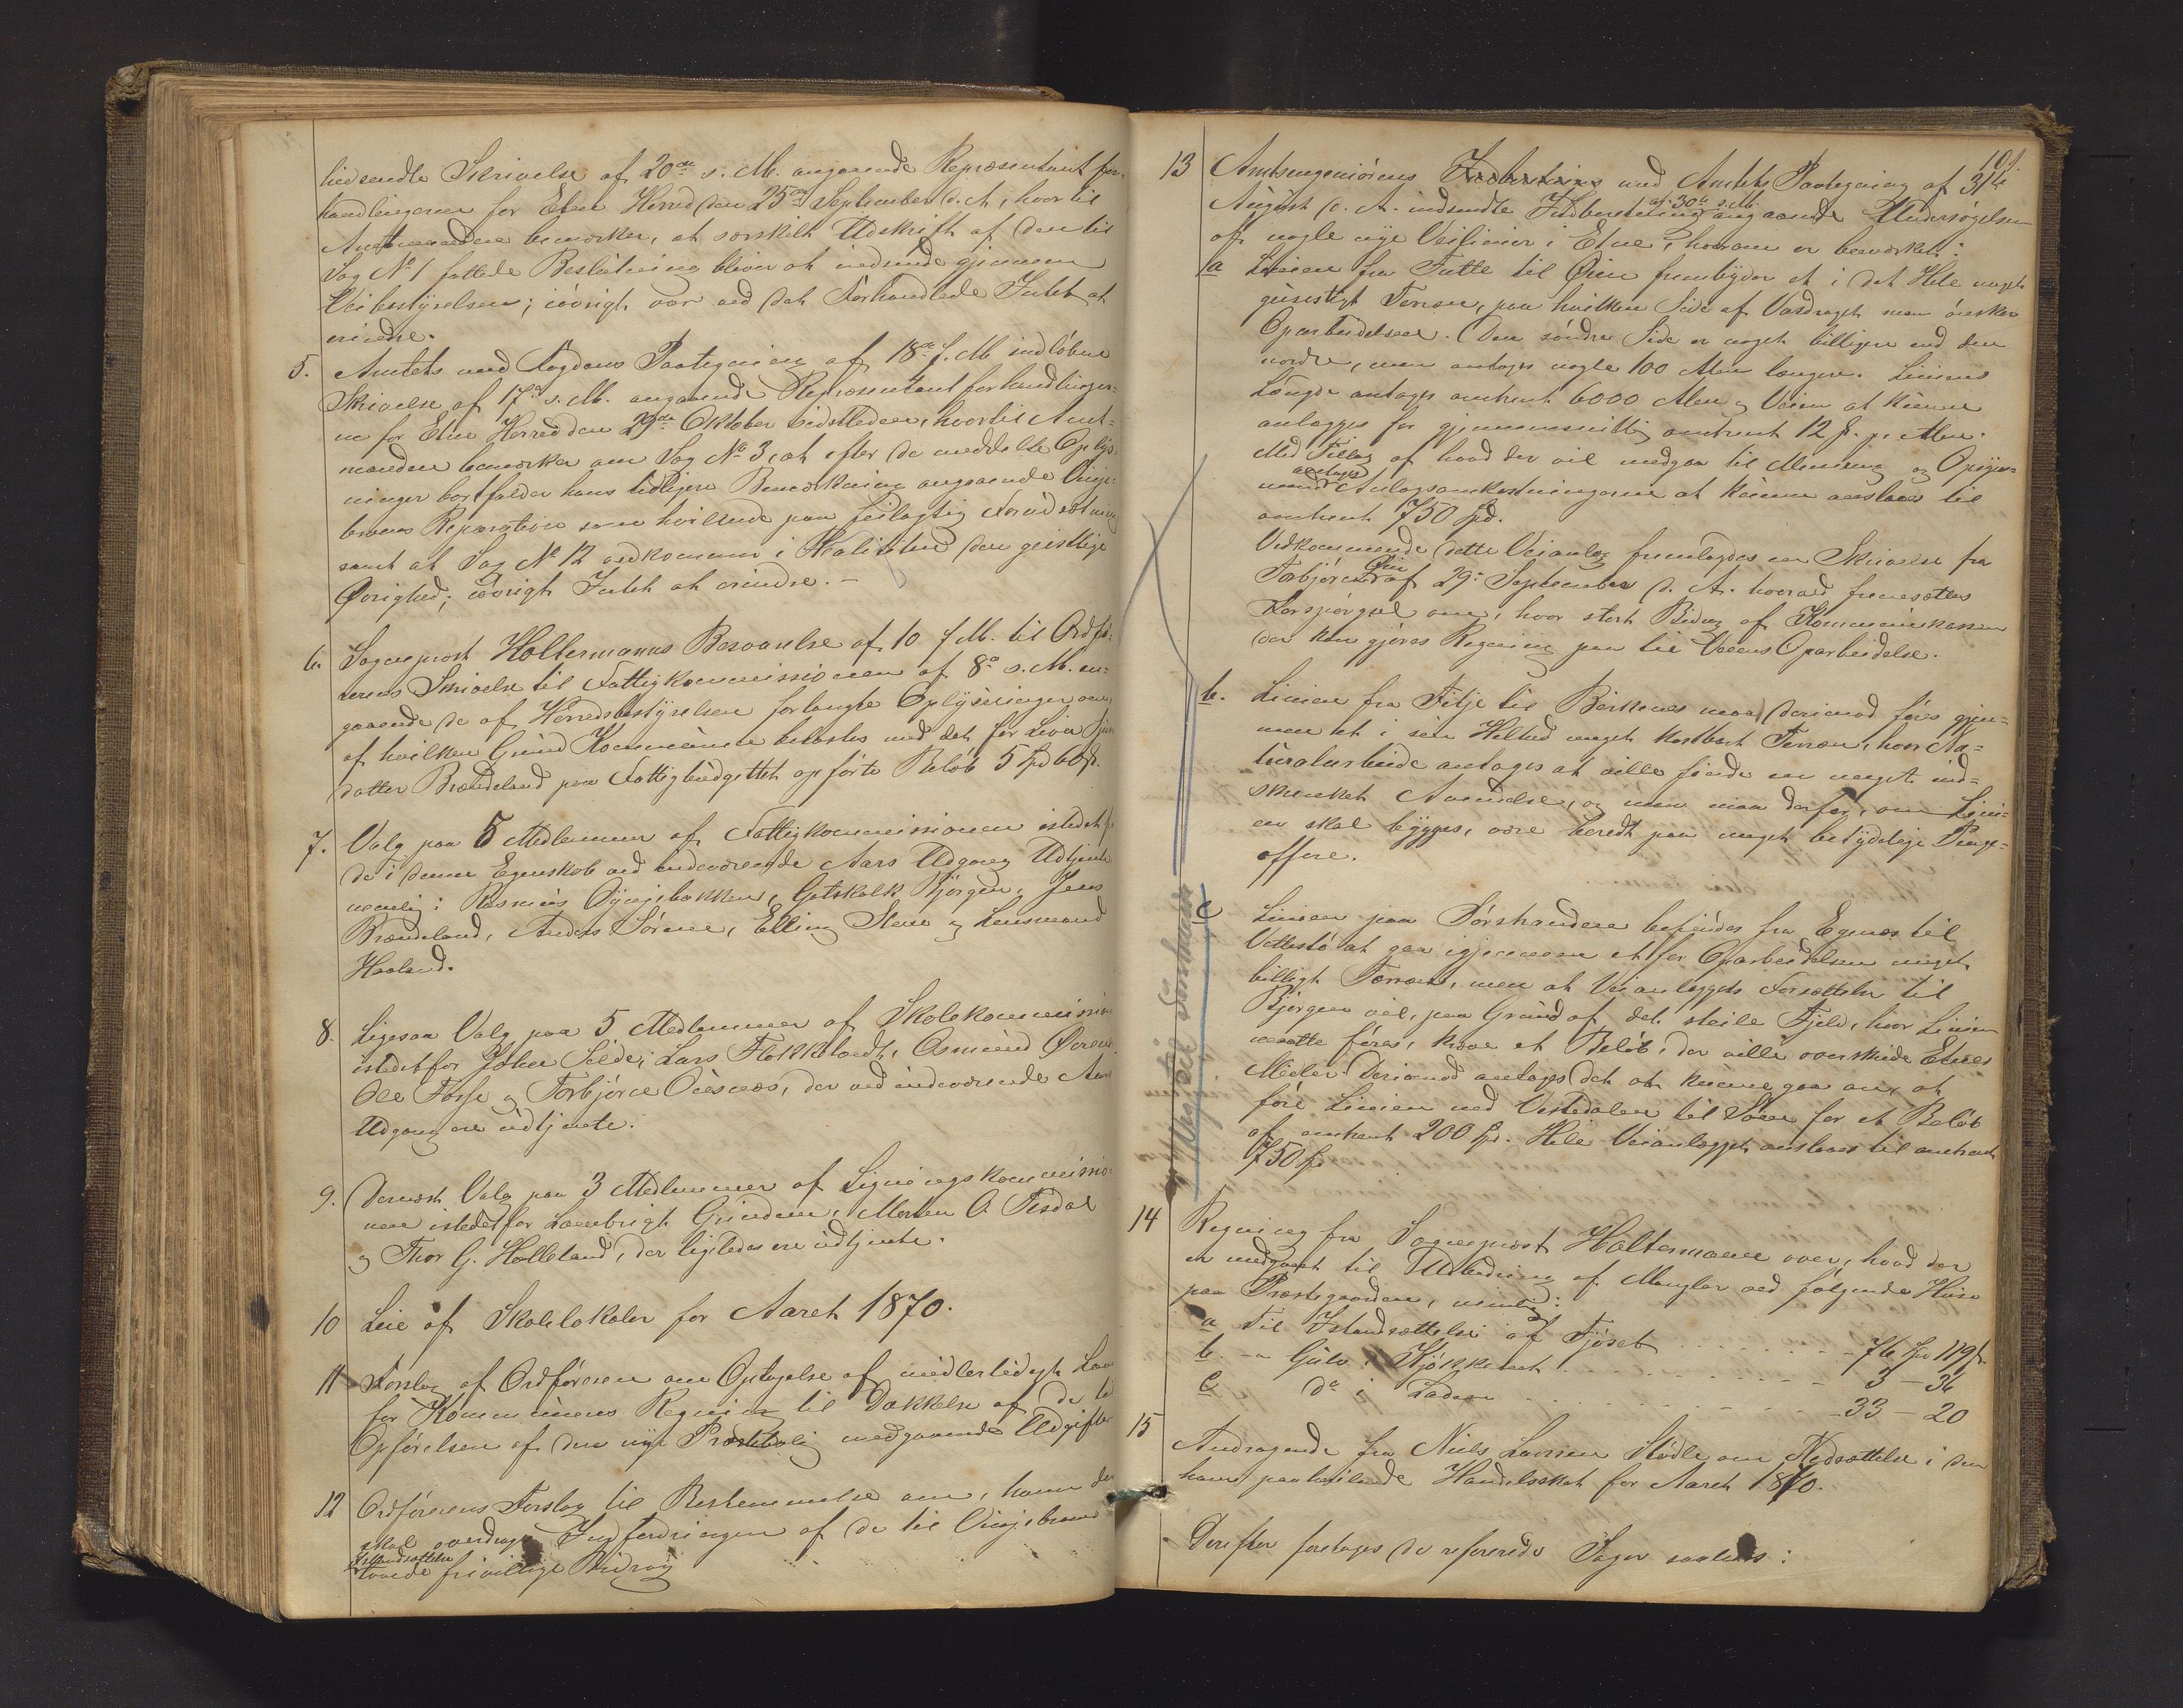 hidsendte Skrivelse af 20de s. M. angaaende Repræsentantfor-
handlingerne for Etne Herred den 25de September d. A., hvortil
Amtmanden bemærker, at særskilt Udskrift af den til
Sag No 1 fattede Beslutning bliver at indsende gjennem
Veibestyrelsen; iøvrigt var ved det Forhandlede Intet at
erindre.
5. Amtets med Fogdens Paategning af 18de f. M. indløbne
Skrivelse af 17de s. M. angaaende Repræsentantforhandlinger-
ne for Etne Herred den 29de Oktober sidstleden, hvortil Amt-
manden bemærker om Sag No 3, at efter de meddelte Oplys-
ninger bortfalder hans tidligere Bemærkning angaaende
broens Reparation som hvilende paa feilagtig Forudsætning
samt at Sag No 12 vedkommer i Realiteten den geistlige
Øvrighed; iøvrigt Intet at erindre. –
6. Sogneprest Holtermanns Besvarelse af 10 f. M. til Ordfø-
rerens Skrivelse til Fattigkommissionen af 8de s. M. an-
gaaende de af Herredsbestyrelsen forlangte Oplysninger om,
af hvilken Grund Kommunen belastes med det for
datter Brændeland paa Fattigbudgettet opførte Beløb 5 Spd 60 s.
7. Valg paa 5 Medlemmer af Fattigkommissionen istedetfor
de i denne Egenskab ved indeværende Aars Udgang Udtjente
nemlig: Rasmus Ognjebakken, Gotskalk Bjørgen, Jens
Brændeland, Anders Sørene, Elling Steine og Lensmand
Haaland.
8. Ligesaa Valg paa 5 Medlemmer af Skolekommission
istedetfor John Silde, Lars Flokketvedt, Osmund Øvrevi
Ole Fosse og Torbjørn Osnæs, der ved indeværende Aars
Udgang ere udtjente.
9. Dernæst Valg paa 3 Medlemmer af Ligningskommissio-
nen istedetfor Lambrigt Grindem, Morten O. Tesdal
og Thor G. Holleland, der ligeledes ere udtjente.
10 Leie af Skolelokaler for Aaret 1870.
11 Forslag af Ordføreren om Optagelse af midlertidigt Laan
for Kommunens Regning til Dækkelse af de til
Opførelsen af den nye Præstebolig medgaaende Udgifter
12 Ordførerens Forslag til Bestemmelse om, hvem der
skal overdrages Inddrivningen af de til
Istandsættelse
lovede frivillige Bidrag
101.
13 Amtsingeniørens med Amtets Paategning af 31te
August d. A. indsendte Indberetning af 30te s. M. angaaende Undersøgelsen
af nogle nye Veilinier i Etne, hvorom er bemærket:
a Linien fra Tutle til Øien frembyder et i det Hele meget
gunstigt Terræn, paa hvilken Side af Vasdraget man ønsker
Oparbeidelsen. Den søndre Side er noget billigere end den
nordre, men antages nogle 100 Alen længere. Liniens
Længde antages omtrent 6000 Alen og Veien at kunne
anlægges for gjennemsnitlig omtrent 12 s. pr. Alen.
Med Tillæg af hvad der vil medgaa til Minering og Opsyns-
mand antages Anlægsomkostningerne at kunne anslaaes til
omtrent 750 Spd.
Vedkommende dette Veianlæg fremlagdes en Skrivelse fra
Torbjørn Øien af 29de September d. A. hvorved fremsættes
Forspørgsel om, hvor stort Bidrag af Kommunekassen
der kan gjøres Regning paa til Veiens Oparbeidelse.
b. Linien fra Filje til Birkenes maa derimod føres gjen-
nem et i sin Helhed meget kostbart Terræn, hvor Na-
turalarbeide antages at ville finde en meget ind-
skrænket Anvendelse, og man maa derfor, om Lini-
en skal bygges, være beredt paa meget betydelige Penge-
offere.
c Linien paa Sørstranden befindes fra Egenæs til
Vettestø at gaa igjennem et for Oparbeidelsen meget
billigt Terræn, men at Veianlæggets Forsættelse til
Bjørgen vil, paa Grund af det steile Fjeld, hvor Linien
maatte føres, kræve et Beløb, der ville overskride Etnes
Midler. Derimod antages det at kunne gaa an, at
føre Linien ned Vestedalen til Søen for et Beløb
af omtrent 200 Spd. Hele Veianlægget anslaaes til omtrent
750 Spd.
Veg til Sørstranden
14 Regning fra Sogneprest Holtermann over, hvad der
er medgaaet til Udbedring af Mangler ved følgende Huse
paa Præstegaarden, nemlig:
a Til Istandsættelse af Fjøset . . . . . . . 76 Spd 119 s.
b. –" Gulv i Kjøkkenet . . . . . . . 3 – 36
c do i Laden . . . . . . . 33 – 20
15 Andragende fra Niels Larsen Stødle om Nedsættelse i den
ham paahvilende Handelsskat for Aaret 1870.
Derefter foretages de refererede Sager saaledes: